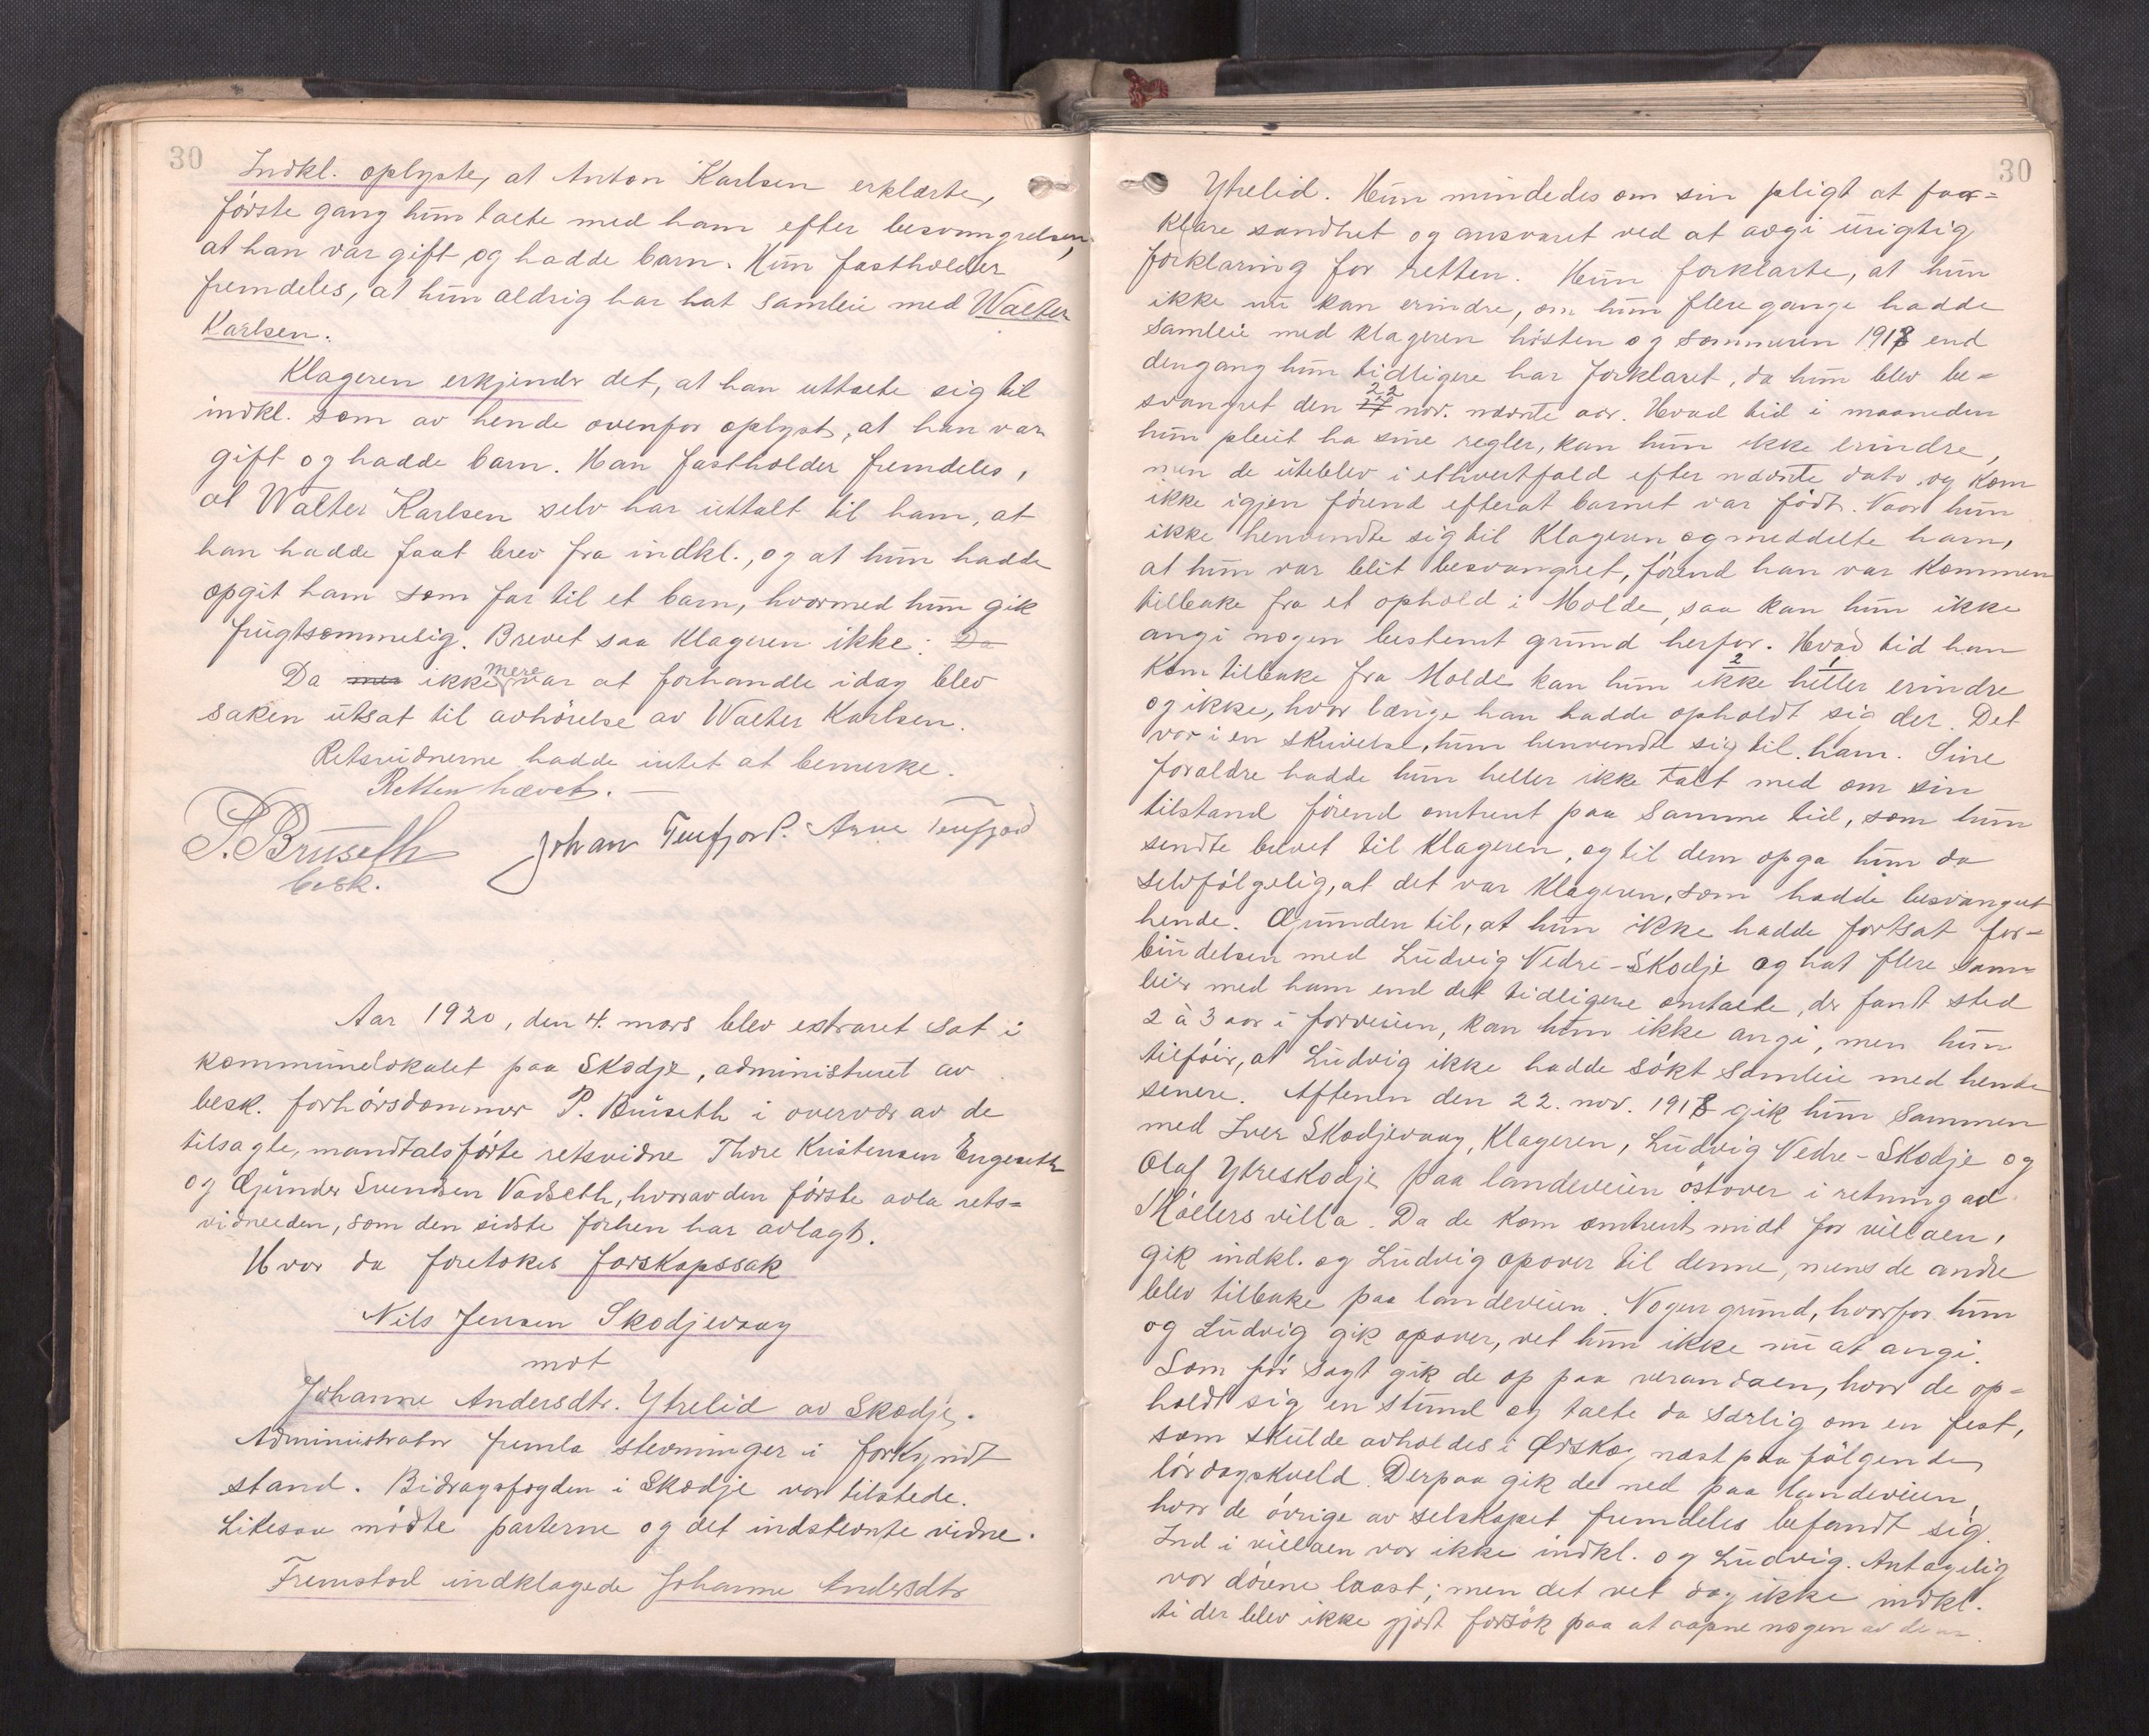 30
Indkl. oplyste, at Anton Karlsen erklærte,
første gang hun talte med ham efter besvangrelsen,
at han var gift og hadde barn. Hun fastholder
fremdeles, at hun aldrig har hat samleie med Walter
Karlsen.
Klageren erkjender det, at han uttalte sig til
indkl. som av hende ovenfor oplyst, at han var
gift og hadde barn. Han fastholder fremdeles,
at Walter Karlsen selv har uttalt til ham, at
han hadde faat brev fra indkl., og at hun hadde
opgit ham som far til et barn, hvormed hun gik
frugtsommelig. Brevet saa klageren ikke. Da
Da mer ikke mere var at forhandle idag blev
saken utsat til avhørelse av Walter Karlsen.
Retsvidnerne hadde intet at bemerke.
Retten hævet. —
P. Bruseth Johan Tenfjord. Arne Tenfjord
besk.
Aar 1920, den 4. mars blev extraret sat i
kommunelokalet paa Skodje, administreret av
besk. forhørsdommer P. Bruseth i overvær av de
tilsagte, mandtalsførte retsvidne Thore Kristensen Engeseth
og Gunder Svendsen Vadseth, hvorav den første avla rets=
vidneeden, som den sidste forhen har avlagt.
Hvor da foretokes farskapssak
Nils Jensen Skodjevaag
mot
Johanne Andersdtr. Ytrelid av Skodje.
Administrator fremla stevninger i forkyndt
stand. Bidragsfogden i Skodje var tilstede.
Likesaa mødte parterne og det indstevnte vidne.
Fremstod indklagede Johanne Andersdtr
30
Ytrelid. Hun mindedes om sin pligt at for=
klare sandhet og ansvaret ved at avgi urigtig
forklaring for retten. Hun forklarte, at hun
ikke nu kan erindre, om hun flere gange hadde
samleie med klageren høsten og sommeren 1918 end
dengang hun tidligere har forklaret, da hun blev be=
svangret den 22 nov. nævnte aar. Hvad tid i maaneden
hun pleiet ha sine regler, kan hun ikke erindre,
men de uteblev i ethvertfald efter nævnte dato og kom
ikke igjen førend efterat barnet var født. Naar hun
ikke henvendte sig til klageren og meddelte ham,
at hun var blit besvangret, førend han var kommen
tilbake fra et ophold i Molde, saa kan hun ikke
angi nogen bestemt grund herfor. Hvad tid han
kom tilbake fra Molde kan hun ikke heller erindre
og ikke, hvor længe han hadde opholdt sig der. Det
var i en skrivelse, hun henvendte sig til ham. Sine
foraldre hadde hun heller ikke talt med om sin
tilstand førend omtrent paa samme tid, som hun
sendte brevet til klageren, og til dem opga hun da
selvfølgelig, at det var klageren, som hadde besvangret
hende. Grunden til, at hun ikke hadde fortsat for=
bindelsen med Ludvig Nedre-Skodje og hat flere sam=
leier med ham end det tidligere omtalte, der fandt sted
2 à 3 aar i forveien, kan hun ikke angi, men hun
tilføir, at Ludvig ikke hadde søkt samleie med hende
senere. Aftenen den 22. nov. 1918 gik hun sammen
med Iver Skodjevaag, Klageren, Ludvig Nedre-Skodje og
Olaf Ytreskodje paa landeveien østover i retning av
Møllers villa. Da de kom omtrent midt for villaen,
gik indkl. og Ludvig opover til denne, mens de andre
blev tilbake paa landeveien. Nogen grund, hvorfor hun
og Ludvig gik opover, vet hun ikke nu at angi.
Som før sagt gik de op paa verandaen, hvor de op=
holdt sig en stund og talte da særlig om en fest,
som skulde avholdes i Ørskog næst paafølgende
lørdagskveld. Derpaa gik de ned paa landeveien,
hvor de øvrige av selskapet fremdeles befandt sig.
Ind i villaen var ikke indkl. og Ludvig. Antagelig
var dørene laast; men det vet dog ikke indkl.
ti der blev ikke gjort forsøk paa at aapne nogen av dem.